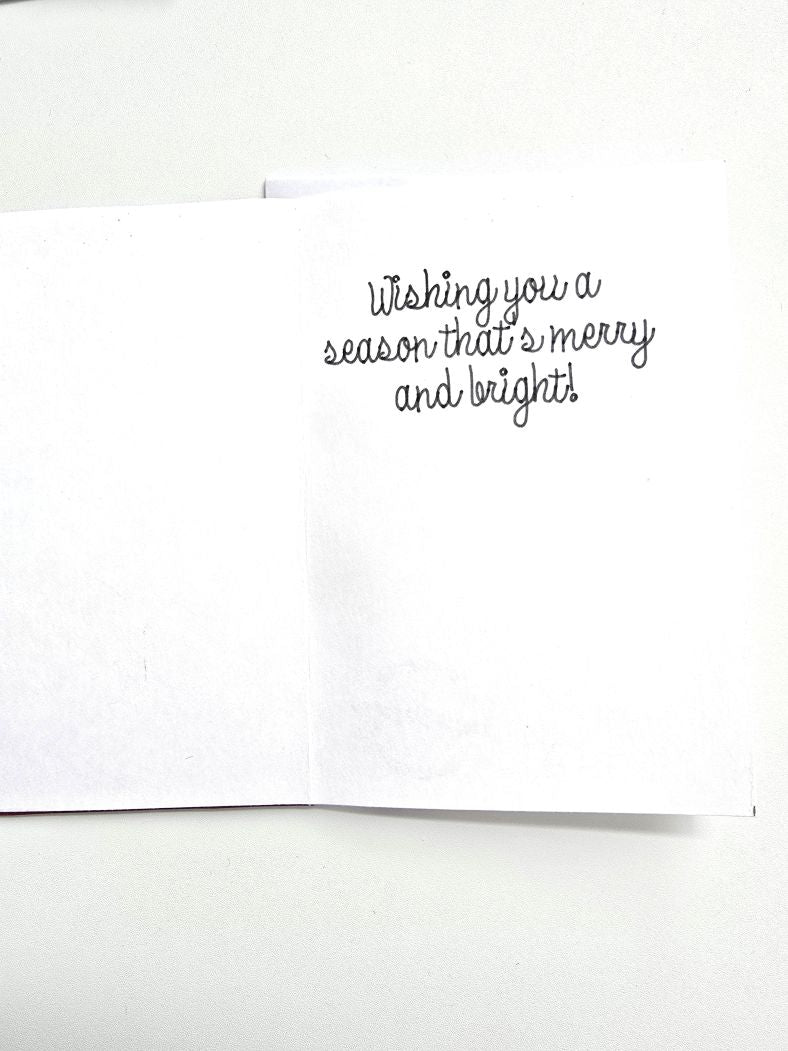 Wishing you a
season that's merry
and bright!